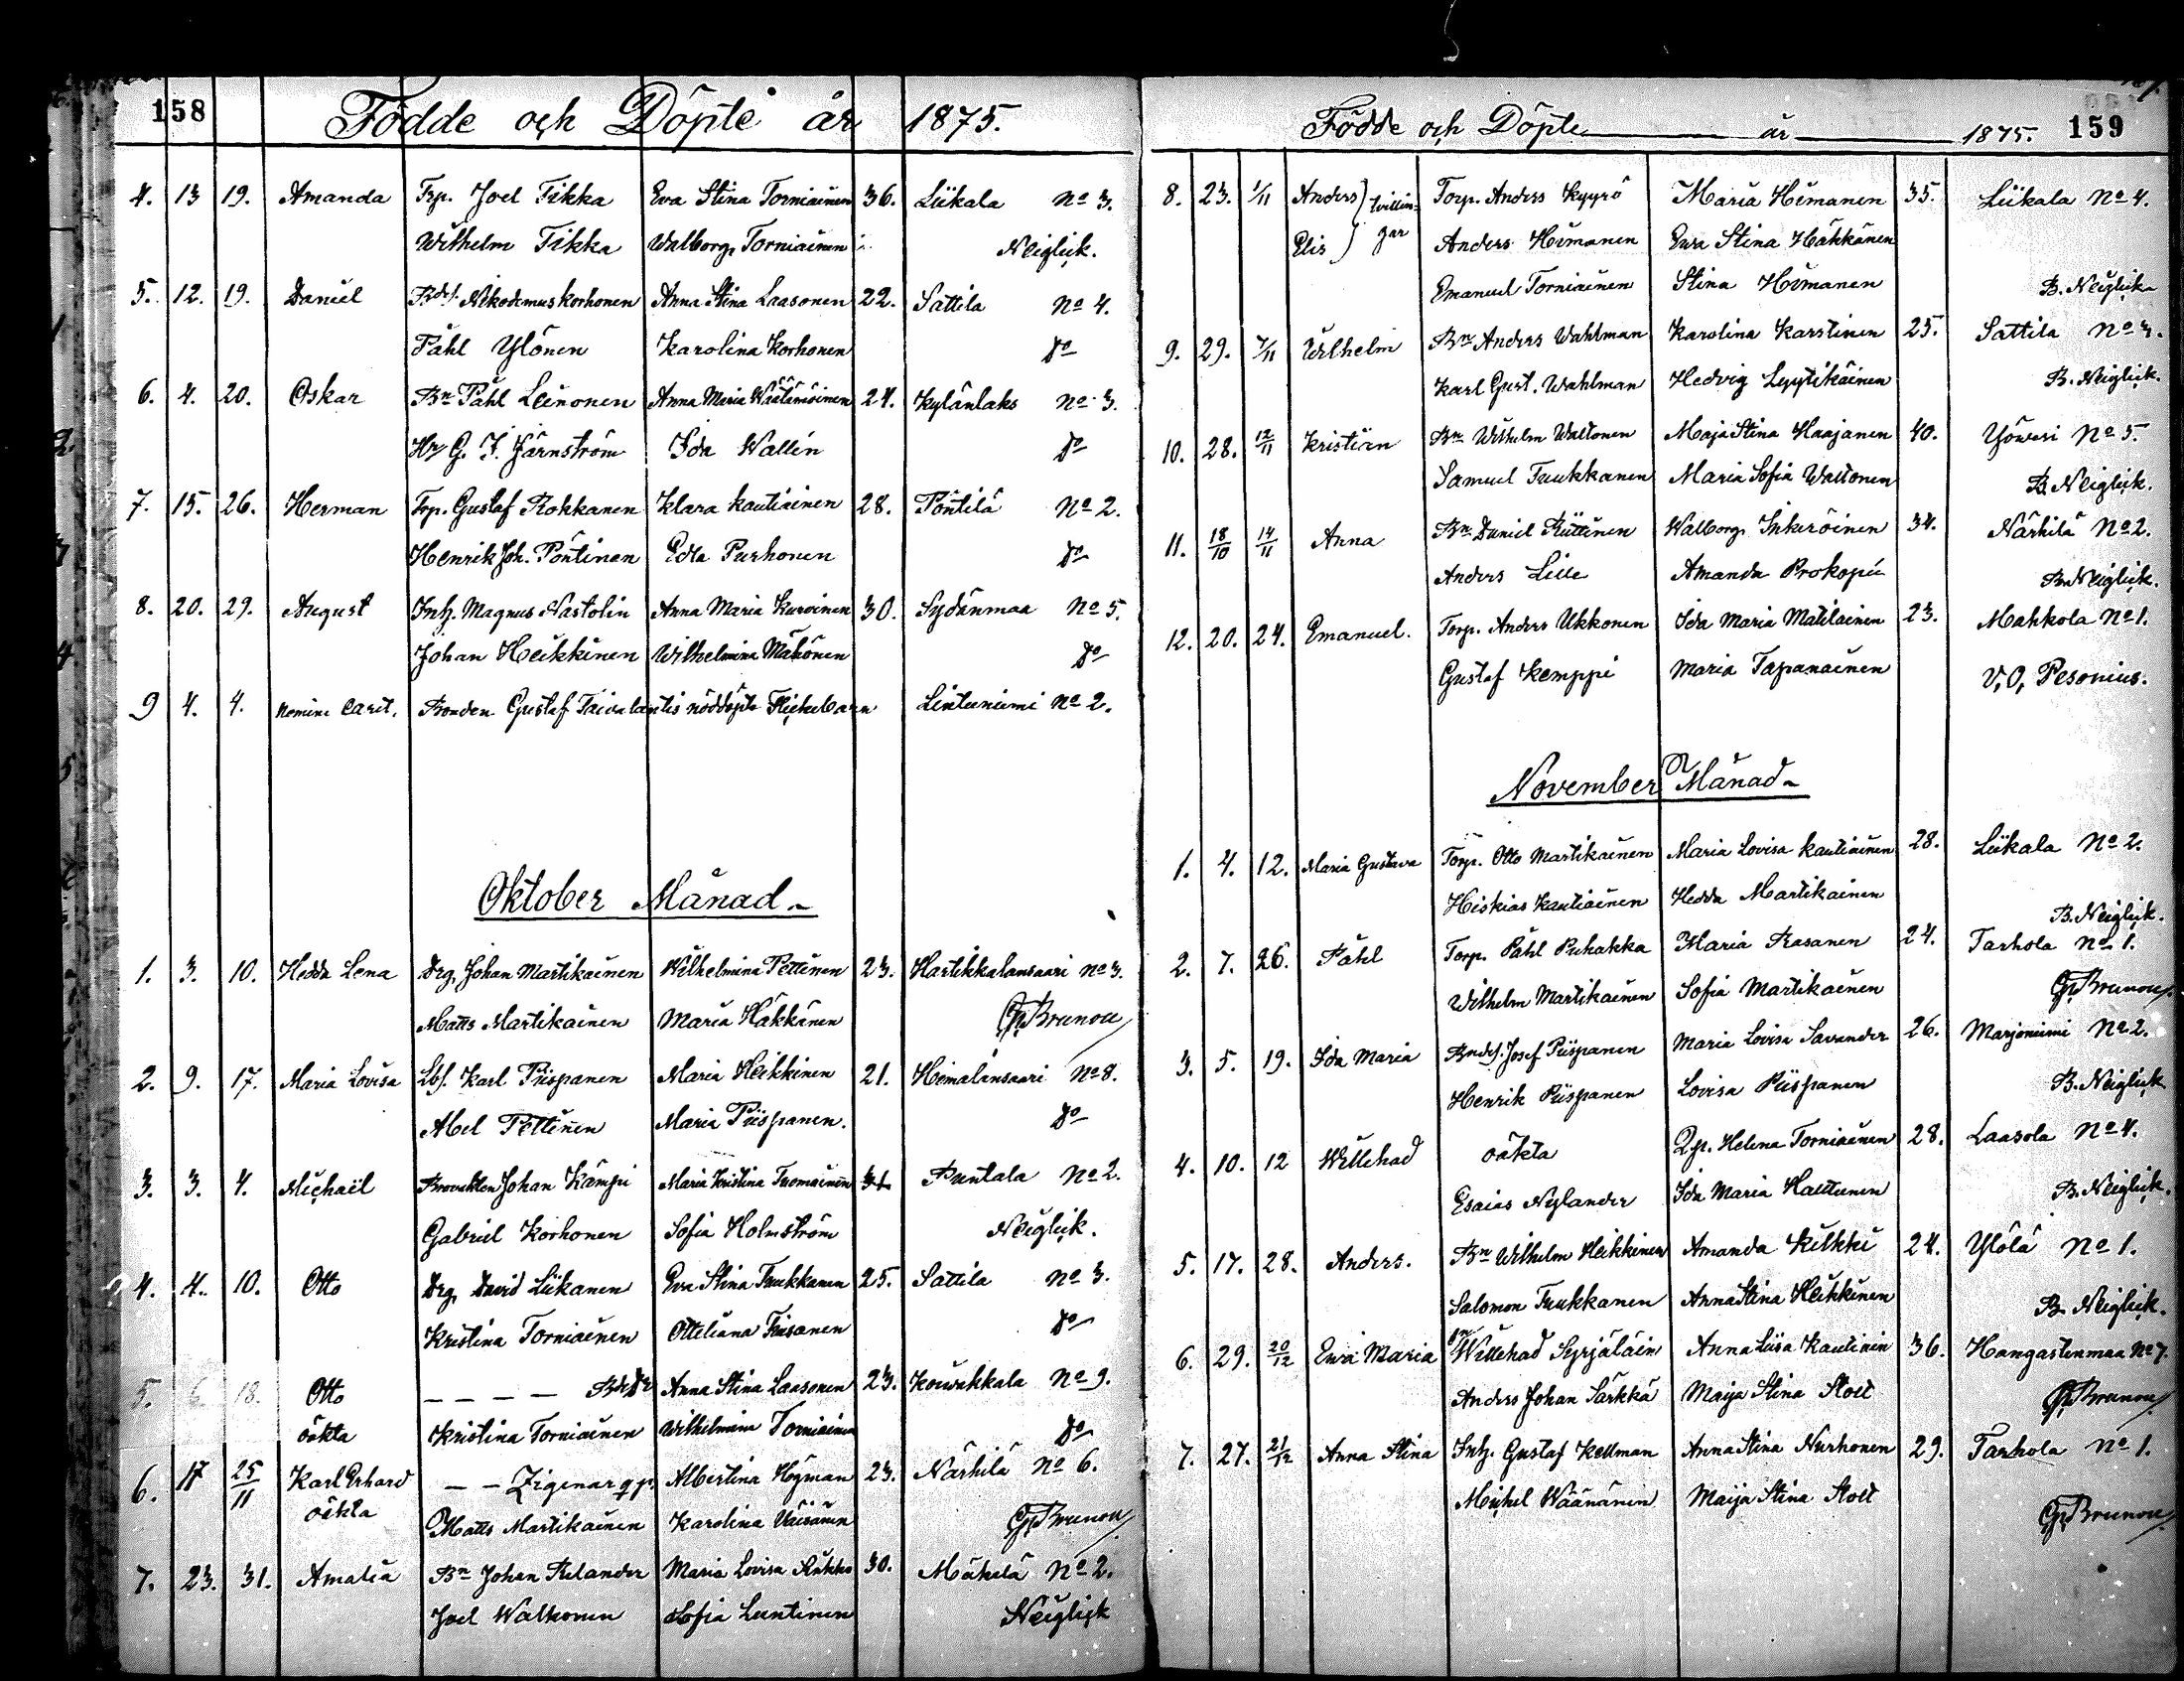 158 Födde och Döpte år 1875.
4. 13 19. Amanda Trp. Joel Tikka Eva Stina Torniainen 36. Liikala No 3.
Wilhelm Tikka Walborg Torniainen Neiglick.
5. 12. 19. Daniel Bds. Nikodemus Korhonen Anna Stina Laasonen 22. Sattila No 4.
Påhl Ylönen Karolina Korhonen Do
6. 4. 20. Oskar Bn Påhl Leinonen Anna Maria Wäätämöinen 24. Kylänlaks No 3.
Hr G. F. Järnström Ida Wallin Do
7. 15. 26. Herman Trp. Gustaf Rokkanen Klara Kautiainen 28. Pöntilä No 2.
Henrik Joh. Pöntinen Edla Purhonen Do
8. 20. 29. August Inh. Magnus Nastolin Anna Maria Kuroinen 30. Sydänmaa No 5.
Johan Heikkinen Wilhelmina Mähönen Do
9 4. 4. nomine carit. Bonden Gustaf Taivalantis nöddöpta Flickebarn Lintuniemi No 2.
Oktober Månad
1. 3. 10. Hedda Lena Drg. Johan Martikainen Wilhelmina Pettinen 23. Hartikkalansaari No 3.
Matts Martikainen Maria Häkkänen G. Brunou
2. 9. 17. Maria Lovisa Lbf. Karl Piispanen Maria Heikkinen 21. Himalansaari No 8.
Abel Pettinen Maria Piispanen. Do
3. 3. 4. Michaël Johan Kämpi Maria Kristina Tuomainen 31 Puntala No 2.
Gabriel Korhonen Sofia Holmström Neiglick.
4. 4. 10. Otto Drg. David Liikanen Eva Stina Tuukkanen 25. Sattila No 3.
Kristina Torniainen Otteliana Tiusanen Do
5. 6 18. Otto — — — — Anna Stina Laasonen 23. Kouwukkala No 9.
oäkta Kristina Torniainen Wilhelmina Torniainen Do
6. 17 25/11 Karl Erhard — — Zigenar qp. Albertina Högman 23. Närhilä No 6.
oäkta Matts Martikainen Karolina Väisänen G. Brunou
7. 23. 31. Amalia Bn Johan Relander Maria Lovisa Rukko 30. Mäkelä No 2.
Joel Walkonen Sofia Luntinen Neiglick
Födde och Döpte år 1875. 159
8. 23. 1/11 Anders } tvillin- Torp. Anders Kyyrö Maria Himanen 35. Liikala No 4.
Elis } gar Anders Himanen Ewa Stina Häkkänen
Emanuel Torniainen Stina Himanen B. Neiglick
9. 29. 7/11 Wilhelm Bn Anders Wahlman Karolina Karstinen 25. Sattila No 3.
Karl Gust. Wahlman Hedvig Lyytikäinen B. Neiglick.
10. 28. 12/11 Kristian Bn Wilhelm Waltonen Maja Stina Haajanen 40. Yöweri No 5.
Samuel Tuukkanen Maria Sofia Waltonen B. Neiglick.
11. 18/10 14/11 Anna Bn Daniel Riittinen Walborg Inkeröinen 34. Närhilä No 2.
Anders Lille Amanda Prokopii B. Neiglick.
12. 20. 24. Emanuel. Torp. Anders Ukkonen Ida Maria Matilainen 23. Mahkola No 1.
Gustaf Kemppi Maria Tapanainen V. O. Pesonius.
November Månad
1. 4. 12. Maria Gustava Torp. Otto Martikainen Maria Lovisa Kautiainen 28. Liikala No 2.
Hiskias Kautiainen Hedda Martikainen B. Neiglick.
2. 7. 26. Påhl Torp. Påhl Puhakka Maria Rasanen 24. Tarhola No 1.
Wilhelm Martikainen Sofia Martikainen G. Brunou
3. 5. 19. Ida Maria Bndes. Josef Piispanen Maria Lovisa Savander 26. Marjoniemi No 2.
Henrik Piispanen Lovisa Piispanen B. Neiglick
4. 10. 12 Willehad oäkta Qp. Helena Torniainen 28. Laasola No 4.
Esaias Nylander Ida Maria Halttunen B. Neiglick.
5. 17. 28. Anders. Bn Wilhelm Heikkinen Amanda Kilkki 24. Ylölä No 1.
Salomon Tuukkanen Anna Stina Heikkinen B. Neiglick.
6. 29. 20/12 Ewa Maria Bn Willehad Syrjäläin Anna Liisa Kautinin 36. Hangastenmaa No 7.
Anders Johan Särkkä Maija Stina Stolt G. Brunou
7. 27. 21/12 Anna Stina Inh. Gustaf Kellman Anna Stina Nurhonen 29. Tarhola No 1.
Michel Wäänänen Maija Stina Stolt G. Brunou